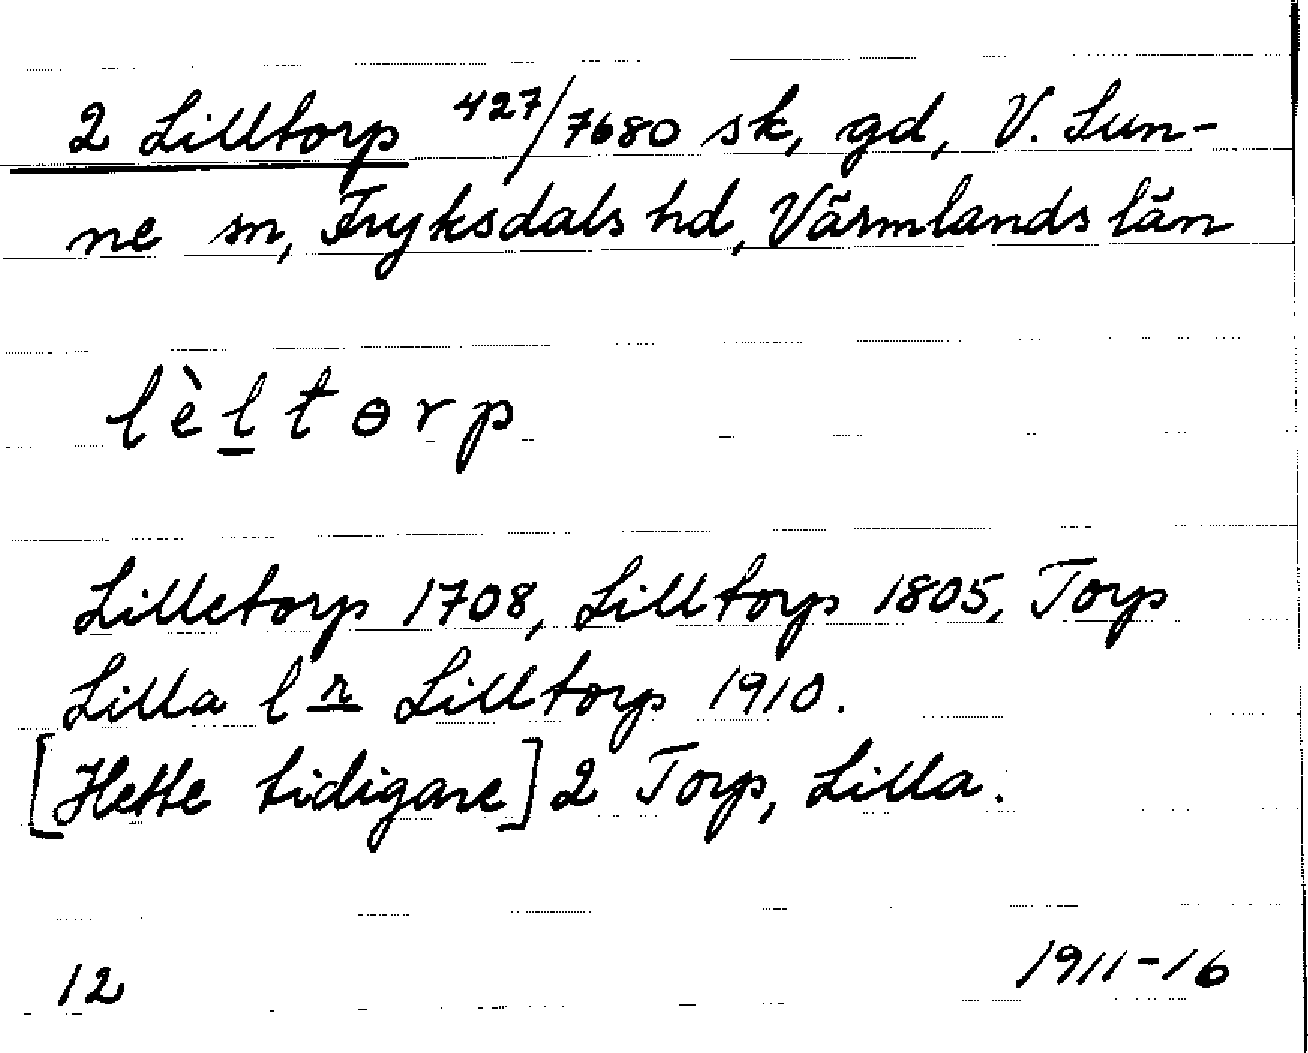 2 Lilltorp 427/7680 sk, gd, V. Sun-
ne sn, Fryksdals hd, Värmlands län
lèltɵrp
Lilletorp 1708, Lilltorp 1805, Torp
Lilla l n Lilltorp 1910.
[Hette tidigare] 2 Torp, Lilla.
12 1911-16